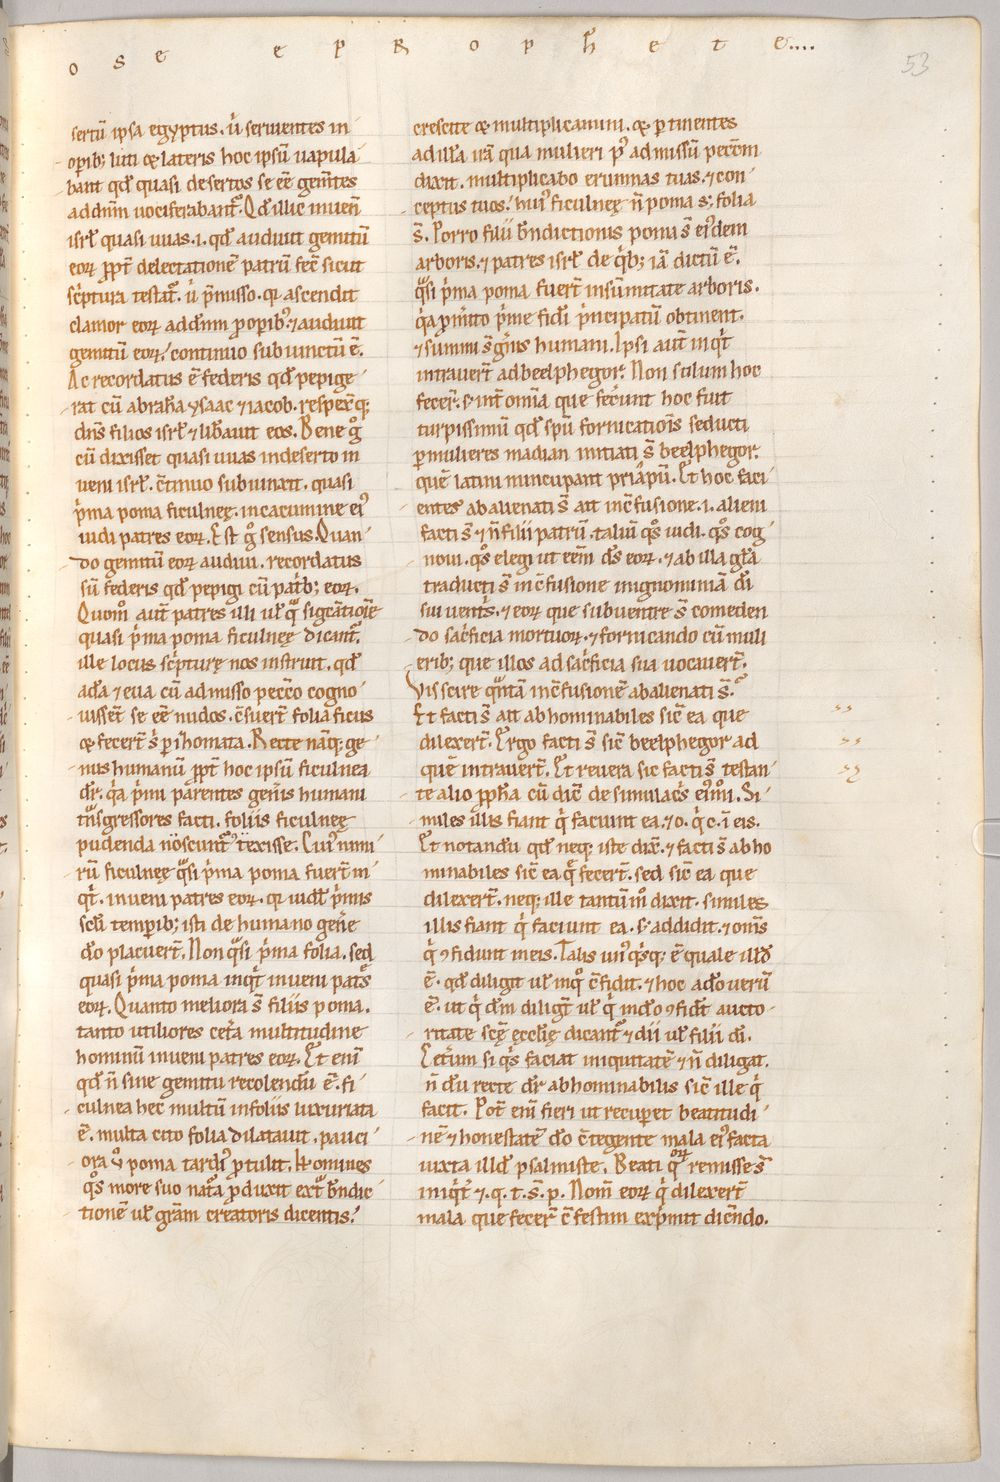 o s e e p R o p h̄ e t e....
53
sertū ipsa egyptus. ů seruientes in
opib; luti & lateris hoc ipsū uapula
bant qđ quasi desertos se eē gem̄tes
ad dnm̄ uociferabant᷑. Qđ illic inuen̄
isrł quasi uuas. i. qđ audiuit gemitū
eoꝝ ꝓpt̄ delectationē patrū fec̄ sicut
sc͛ptura testat᷑. ů p̄misso. qꝛ ascendit
clamor eoꝝ ad dnm̄ ꝓ opib; ⁊ audiuit
gemitū eoꝝ. continuo subiunctū ē.
Ac recordatus ē federis qđ pepige
rat cū abrahā ysaac ⁊ iacob. respex̄q;
dn̄s filios isrł ⁊ lib̄auit eos. Bene g̊
cū dixisset quasi uuas in deserto in
ueni isrł. c̄tinuo subiunxit. quasi
p͛ma poma ficulneę. in cacumine ei᷒
uidi patres eoꝝ. Est g̊ sensus. Quan
do gemitū eoꝝ audiui. recordatus
sū federis qđ pepigi cū patb; eoꝝ.
Quom̊ aut̄ patres illi uł qͣ significatiōe
quasi p͛ma poma ficulneę dicant᷑.
ille locus sc͛pturę nos instruit. qđ
adā ⁊ eua cū admisso peccō cogno
uissent̄ se eē nudos. c̄suert̄ folia ficus
& fecert̄ s͛ pihomata. Recte nāq; ge
nus humanū ꝓpt̄ hoc ipsū ficulnea
dr̄. q͛a p͛mi parentes gen̄is humani
tͣnsgressores facti. foliis ficulneę
pudenda noscunt᷑ texisse. Cui᷒ nimi
rū ficulneę qͣsi p͛ma poma fuert̄ in
qt͛. inueni patres eoꝝ. qꝛ uidel̄ p͛mis
scłi tempib; isti de humano gen̄e
dō placuert̄. Non qͣsi p͛ma folia. sed
quasi p͛ma poma inqt͛ inueni patͤs
eoꝝ. Quanto meliora s̄ filiis poma.
tanto utiliores cet̄a multitudine
hominū inueni patres eoꝝ. Et enī
qđ n̄ sine gemitu recolendū ē. fi
culnea hec multū in foliis luxuriata
ē. multa cito folia dilatauit. pauci
ora ů poma tardi᷒ ꝓtulit. Homines
qͦs more suo natͣa ꝓduxit extͣ bn̄dic
tionē uł gr̄am creatoris dicentis.
crescite & multiplicamini. & ptinentes
ad ill̄a irā qua mulieri p᷒ admissū pecc̄m
dixit. multiplicabo erumnas tuas. ⁊ con
ceptus tuos. hui᷒ ficulneę n̄ poma s; folia
s̄. Porro filii bn̄dictionis poma s̄ ei᷒dem
arboris. ⁊ patres isrł de qͥb; iā dictū ē.
qͣsi p͛ma poma fuert̄ in sūmitate arboris.
q͛a ꝓmito p͛me fidi p͛ncipatū obtinent.
⁊ summi s̄ gn̄is humani. Ipsi aut̄ inqt͛
intrauert̄ ad beelphegor. Non solum hoc
fecer̄. s; int̄ omīa que fecerunt hoc fuit
turpissimū qđ spū fornicatiōis seducti
ꝑ mulieres madian initiati s̄ beelphegor.
quē latini nuncupant priapū. Et hoc faci
entes abalienati s̄ ait in c̄fusione. i. alieni
facti s̄ ⁊ n̄ filii patrū. taliū qͦs uidi. qͦs cog
noui. qͦs elegi ut eēm dš eoꝝ. ⁊ ab illa glā
traducti s̄ in c̄fusione in ignominiā dī
sui uent͛s. ⁊ eoꝝ que sub uentre s̄ comeden
do sac͛ficia mortuoꝝ. ⁊ fornicando cū muli
erib; que illos ad sac͛ficia sua uocauert̄.
Uis scire qͣntā in c̄fusionē abalienati s̄?
Et facti s̄ ait abhominabiles sic̄ ea que
dilexert̄. Ergo facti s̄ sic̄ beelphegor ad
quē intrauert̄. Et reuera sic facti s̄ testan
te alio ꝓph̄a cū dic̄ de simulac͛s ei᷒mōi. Si
miles illis fiant qͥ faciunt ea. ⁊ o. qͥ c. ī eis.
Et notandū qđ neq; iste dix̄. ⁊ facti s̄ abho
minabiles sic̄ ea qͤ fecert̄. sed sic̄ ea que
dilexert̄. neq; ille tantūm̊ dixit. similes
illis fiant qͥ faciunt ea. s; addidit. ⁊ om̄s
qͥ ꝯfidunt in eis. Talis un᷒qͥsq; ē quale illđ
ē. qđ diligit uł in qͦ c̄fidit. ⁊ hoc adō uerū
ē. ut qͥ dm̄ diligt͛ uł qͥ in dō ꝯfidit aucto
ritate scę ęcclię dicant᷑ ⁊ dii uł filii dī.
Cet̄um si qͥs faciat iniquitatē ⁊ n̄ diligat.
n̄ dū recte dr̄ abhominabilis sic̄ ille qͥ
facit. Pot̄ enī fieri ut recupet beatitudi
nē ⁊ honestatē dō c̄tegente mala ei᷒ facta
iuxta illđ psalmiste. Beati qͦꝝ remisse s̄
iniqͥt̄ ⁊. q. t. s̄. p. Nom̄ eoꝝ qͥ dilexert̄
mala que fecer̄ c̄festim exp͛mit dicēndo.